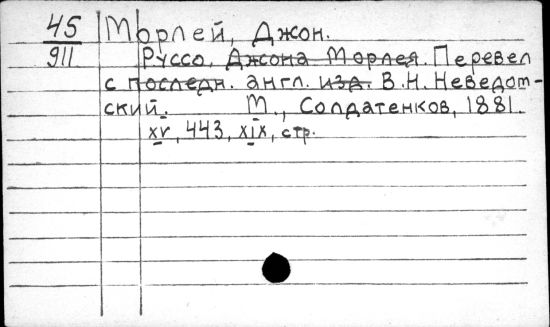 45
911
Морлей, Джон.
Руссо, Джона Морлея. Перевел
с последн. англ. изд. В.Н. Неведом-
ский. М., Солдатенков, 1881.
xv, 443, xix, стр.